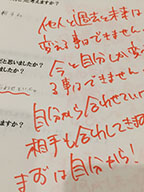 考えますか?
他人と過去と未来は
変える事はできません。
今と自分しか変え
る事はできません。
と思いましたか?
ましたか?
自分から合わせていい
相手も合わしてきま
ますか?
まずは自分から!